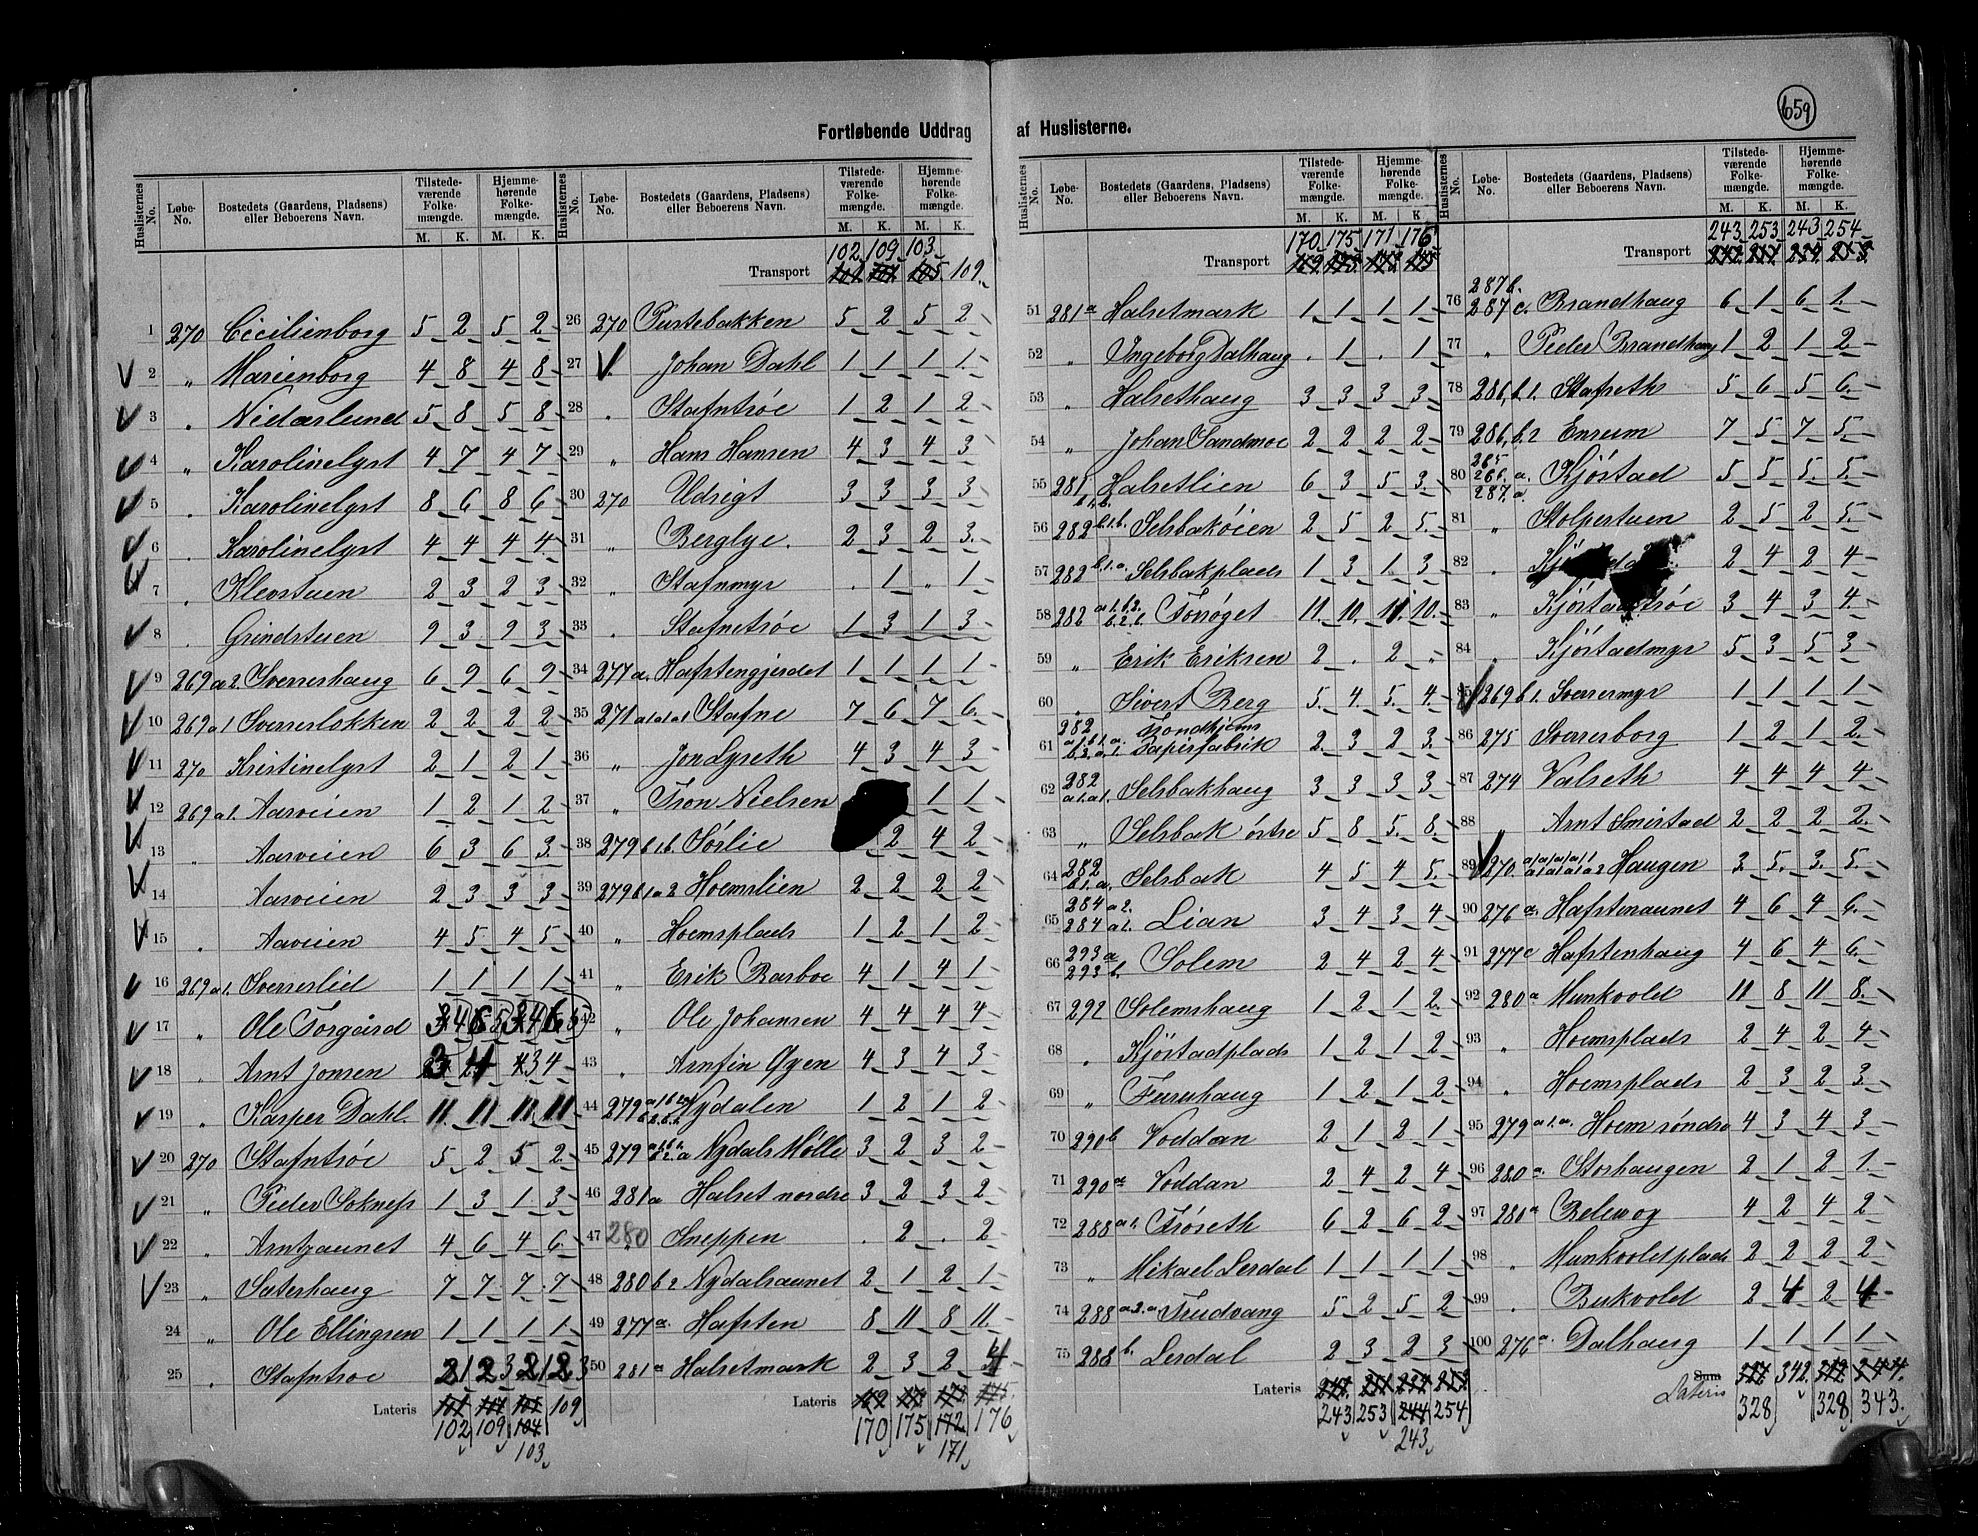 659
Fortløbende Uddrag af Huslisterne.
Huslisternes No. Løbe-No. Bostedets (Gaardens, Pladsens) eller Beboerens Navn. Tilstedeværende Folkemængde. M. K. Hjemmehørende Folkemængde. M. K.
1 270 Cicilienborg 5 2 5 2
2 „ Marienborg 4 8 4 8
3 „ Nidarlund 5 8 5 8
4 „ Karolinelyst 4 7 4 7
5 „ Karolinelyst 8 6 8 6
6 „ Karolinelyst 4 4 4 4
7 „ Klevstuen 2 3 2 3
8 „ Grindstuen 9 3 9 3
9 269 a 2. Sverreshaug 6 9 6 9
10 269 a 1 Sverresløkken 2 2 2 2
11 270 Kristinelyst 2 1 2 1
12 269 a 1. Aasveien 1 2 1 2
13 „ Aasveien 6 3 6 3
14 Aasveien 2 3 3 3
15 „ Aasveien 4 5 4 5
16 269 a 1. Sverreslid 1 1 1 1
17 „ Ole Torgård
18 „ Arnt Jonsen
19 „ Kasper Dahl. 11 11 11 11
20 270 Stafntrøe 5 2 5 2
21 „ Peder Sokness 1 3 1 3
22 „ Arntzaunet 4 6 4 6
23 „ Sæterhaug 7 7 7 7
24 „ Ole Ellingsen 1 1 1 1
25 „ Stafntroe
Lateris 109
102 109 104
103
Huslisternes No. Løbe-No. Bostedets (Gaardens, Pladsens) eller Beboerens Navn. Tilstedeværende Folkemængde. M. K. Hjemmehørende Folkemængde. M. K.
102 109 103
Transport 109
26 270 Pustebakken 5 2 5 2
27 Johan Dahl 1 1 1 1
28 „ Stafntrøe 1 2 1 2
29 „ Hans Hansen 4 3 4 3
30 270 Udsigt 3 3 3 3
31 „ Berglye. 2 3 2 3
32 „ Stafnmyr . 1 „ 1
33 „ Stafnetrøe 1 3 1 3
34 277 a. Hafstengjerdet 1 1 1 1
35 271 a1a1a1 Stafne 7 6 7 6
36 „ Jon Lyseth 4 3 4 3
37 „ Tron Nielsen 1 1
38 279 b 1 b. Sørlie 2 4 2
39 279 b 1 a 2 Hoemslien 2 2 2 2
40 „ Hoemsplads 1 2 1 2
41 Erik Rasboe 4 1 4 1
42 „ Ole Johansen 4 4 4 4
43 „ Arnfin Øyen 4 3 4 3
44 279 Nydalen 1 2 1 2
45 279 Nydals Mølle 3 2 3 2
46 281 a Halset nordre 3 2 3 2
47 280 Sneppen . 2 . 2
48 280 b 2 Nydalsaunet 2 1 2 1
49 277 a. Hafsten 8 11 8 11
50 281 a Halsetmark 2 3 2 4
Lateris
170 175 172 176
171
Huslisternes No. Løbe-No. Bostedets (Gaardens, Pladsens) eller Beboerens Navn. Tilstedeværende Folkemængde. M. K. Hjemmehørende Folkemængde. M. K.
170 175 171 176
Transport
51 281 a Halsetmark 1 1 1 1
52 „ Ingeborg Dalhaug . 1 . 1
53 „ Halsethaug 3 3 3 3
54 „ Johan Sandmoe 2 2 2 2
55 281 b.b. Halsetlien 6 3 5 3
56 282 b.1.b. Selsbakøien 2 5 2 5
57 282 b.1.a. Selsbakplads 1 3 1 3
58 282 Forsøget 11 10 11 10
59 „ Erik Eriksen 2 . 2 „
60 „ Sivert Berg 5 4 5 4
61 282 Trondhjems Papirfabrik 2 3 2 3
62 282 a1.a1. Selsbakhaug 3 3 3 3
63 „ Selsbak østre 5 8 5 8
64 282 b.1.a. Selsbak 4 5 4 5
65 284 a 2. 284 a 1. Lian 3 4 3 4
66 293 a 293 b. Solem 2 4 2 4
67 292 Solemshaug 1 2 1 2
68 „ Kjøstadplads 1 2 1 2
69 „ Furuhaug 1 2 1 2
70 290 b Voddan 2 1 2 1
71 290 a Voddan 2 4 2 4
72 288 a 1. Trøseth 6 2 6 2
73 „ Mikael Lerdal 1 1 1 1
74 288 a.2.a Trudvang 5 2 5 2
75 288 b. Lerdal 2 3 2 3
Lateris
243 253 244 254
243
Huslisternes No. Løbe-No. Bostedets (Gaardens, Pladsens) eller Beboerens Navn. Tilstedeværende Folkemængde. M. K. Hjemmehørende Folkemængde. M. K.
243 253 243 254
Transport
76 287 b. 287 c. Brandhaug 6 1 6 1
77 „ Peder Brandhaug 1 2 1 2
78 286, b.1. Stafseth 5 6 5 6
79 286, b.2 Enrum 7 5 7 5
80 285 286. a. 287. a. Kjøstad 5 5 5 5
81 „ Stolpestuen 2 5 2 5
82 „ 2 4 2 4
83 „ Kjøstadtrøe 3 4 3 4
84 Kjøstadmyr 5 3 5 3
85 269 b 1. Sverresmyr 1 1 1 1
86 275 Sverresborg 1 2 1 2
87 274 Valseth 4 4 4 4
88 Arnt Smistad 2 2 2 2
89 270. Haugen 3 5 3 5
90 276 a. Hafstenaunet 4 6 4 6
91 277 c Hafstenhaug 4 6 4 6
92 280 a Munkvold 11 8 11 8
93 „ Hoemsplads 2 4 2 4
94 „ Hoemsplads 2 3 2 3
95 279 a.1.a. Hoem søndre 4 3 4 3
96 280 a. Storhaugen 2 1 2 1
97 280 a Belevog 4 2 4 2
98 „ Munkvoldplads 2 2 2 2
99 „ Bukvold 2 4 2 4
100 276 a. Dalhaug 1 1 1 1
Sum 342
Lateris 328 328 343.